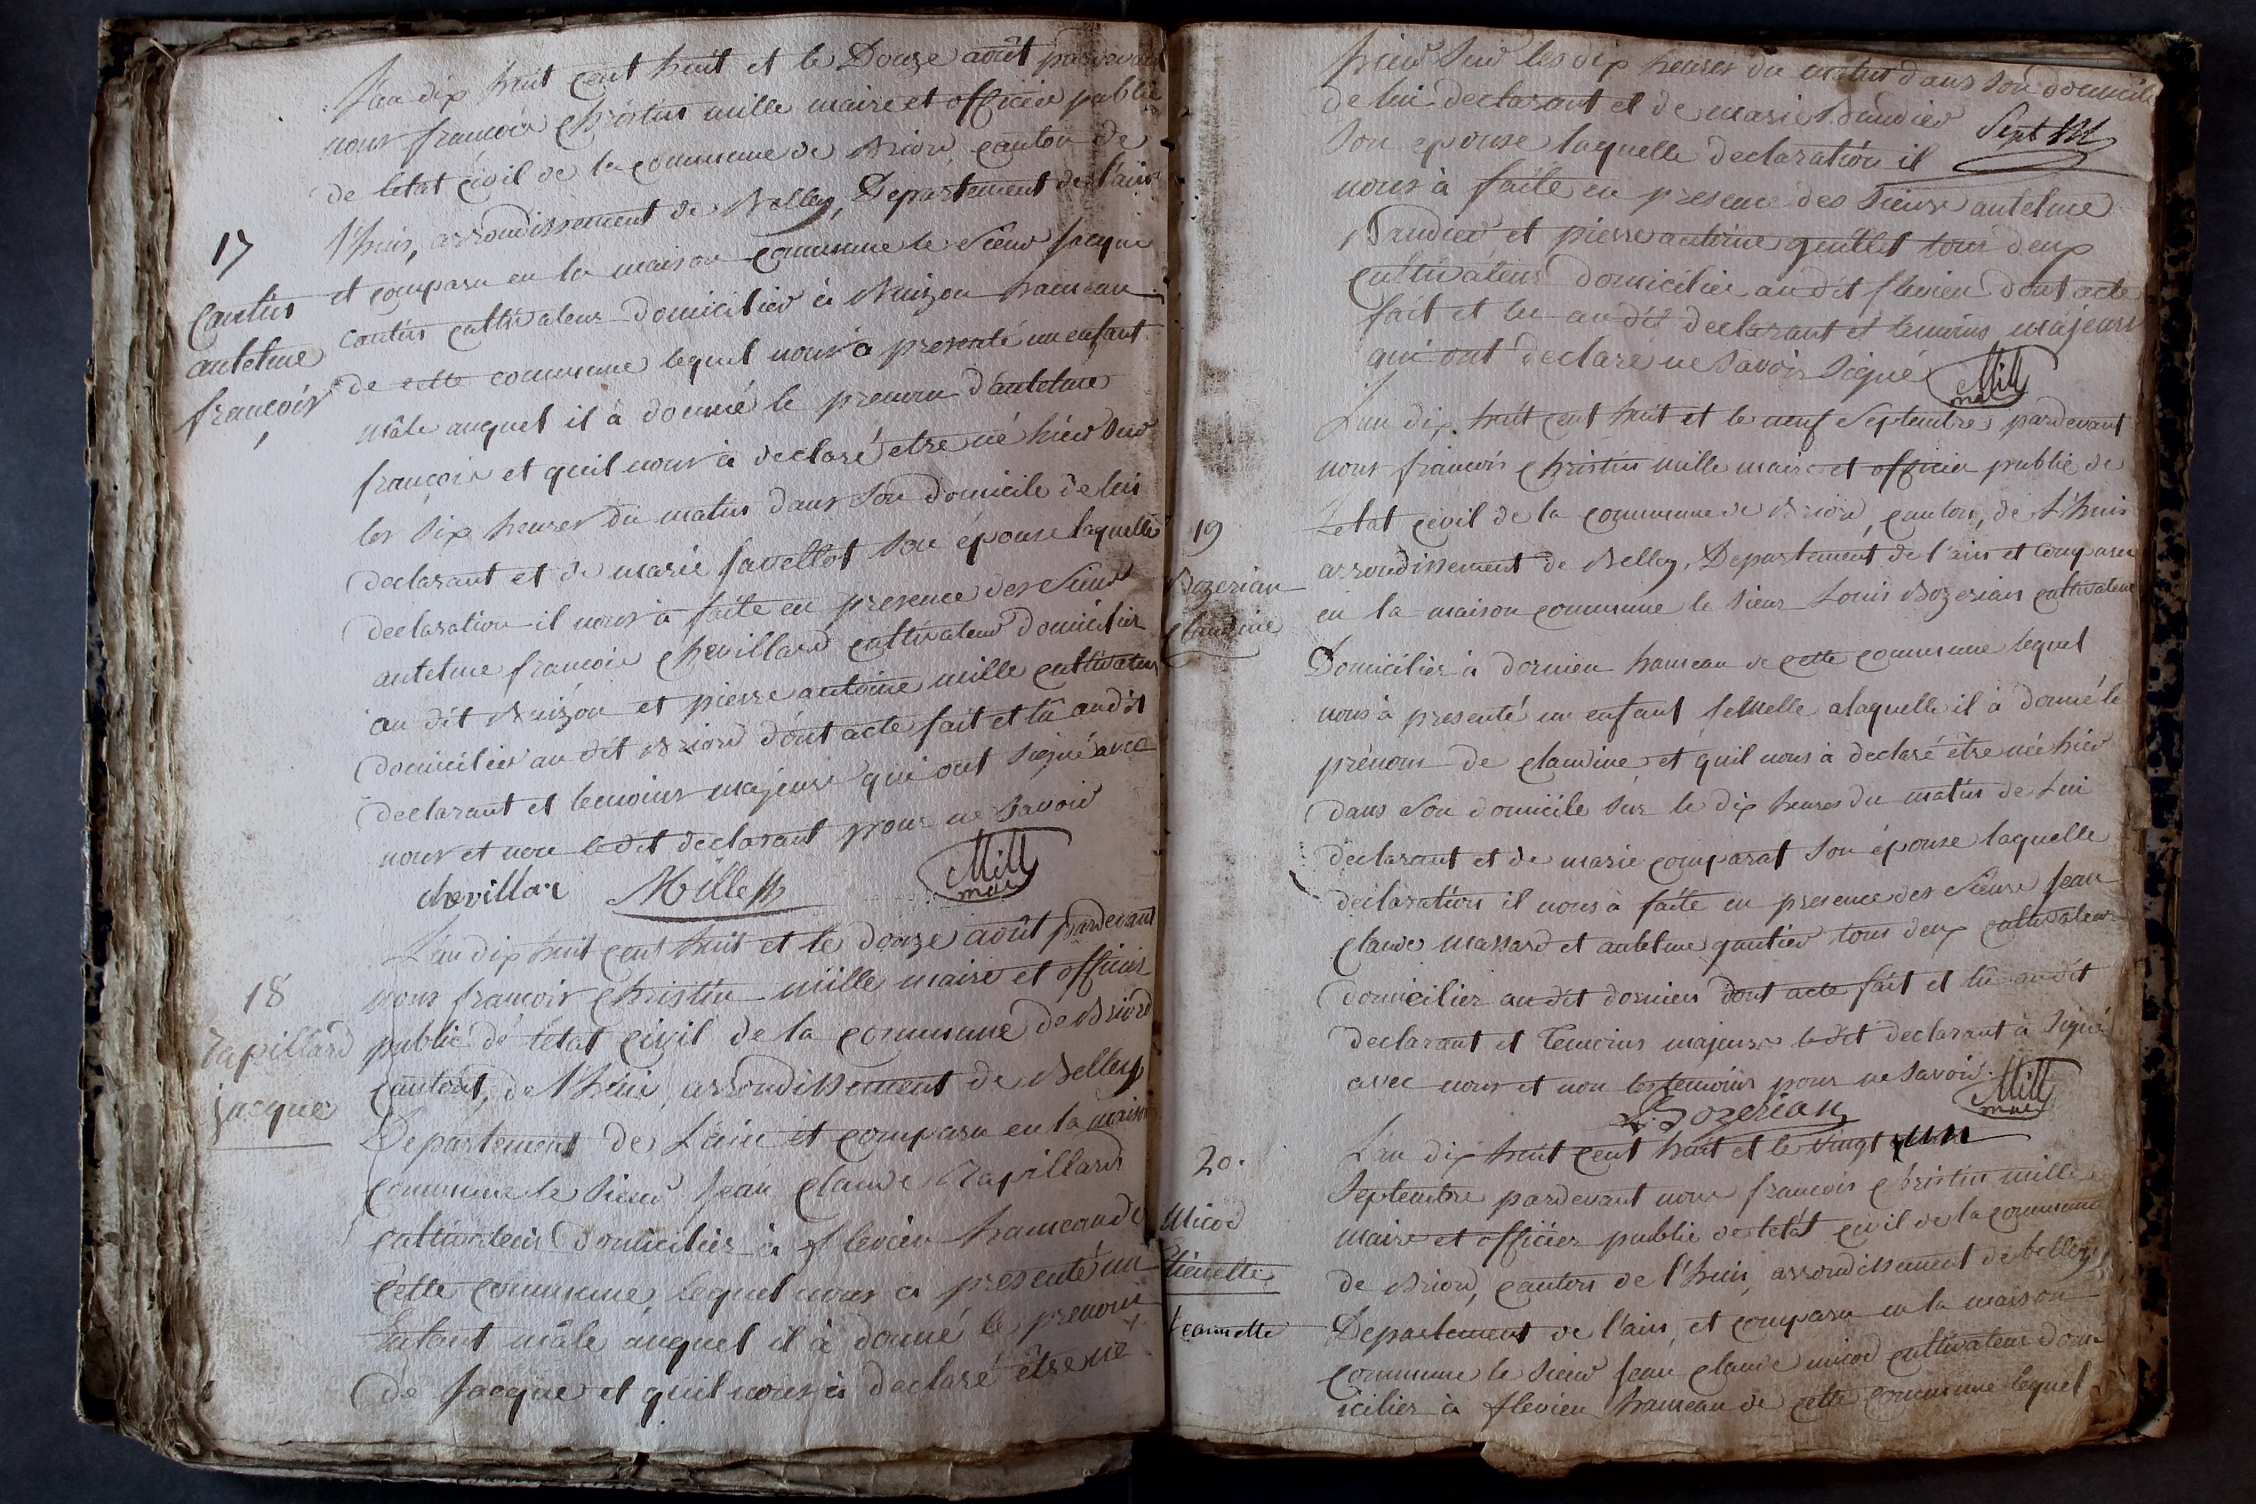 L'an dix huit cent huit et le Douze août pardevant
nous francois christin mille maire et officier public
de letat civil de la commune de Briord canton de
l'huis, arrondissement de Belley, Departement de l'ain
17
et comparu en la maison commune le sieur jacque
cantin
cantin cultivateur domicilier à Buizon hameau
antelme
de cette commune lequel nous à presenté un enfant
francois
mâle auquel il à donné le prenom d'antelme
francois et quil nous à declaré etre né hier sur
les dix heures du matin dans son domicile de lui
declarant et de marie favellot son épouse laquelle
declaration il nous à faite en presence des sieurs
antelme francois chevillard cultivateur domicilier
au dit Buizon et pierre antoine mille cultivateur
domicilier au dit Briord dont acte fait et lû audit
declarant et temoins majeurs qui ont signé avec
nous et non ledit declarant pour ne savoir
chevillar Mille Mill
mai
L'an dix huit cent huit et le douze août pardevant
18
nous francois christin mille maire et officier
public de létat civil de la commune de Briord
rapillard
canton, de l'huis arrondissement de Belley
jacque
Departement de L'ain et comparu en la maison
commune le sieur jean claude rapillard
cultivateur domicilier à flevieu hameau de
cette commune, lequel nous à presenté un
Enfant mâle auquel il à donné le prenom
de jacque et quil nous à declaré être né
hier sur les dix heures du matin dans son domicile
de lui declarant et de marie Baudier
son epouse laquelle declaration il
Sept
nous à faite en presence des sieurs antelme
Baudier et pierre antoine quillet tous deux
cultivateurs domicilier audit flevieu dont acte
fait et lu audit declarant et temoins majeurs
qui ont declaré ne savoir signé
Mill
mai
L'an dix huit cent huit et le neuf Septembre pardevant
nous francois christin mille maire et officier public de
Letat civil de la commune de Briord, canton, de L'huis
19
arrondissement de Belley, Departement de l'ain et comparu
Bozerian
en la maison commune le sieur Louis Bozerian cultivateur
claudine
Domicilier à dornieu hameau de cette commune lequel
nous à presenté un enfant femelle alaquelle il à donné le
prénom de claudine et quil nous à declaré être née hier
dans son domicile sur le dix heures du matin de Lui
declarant et de marie comparat son épouse laquelle
declaration il nous à faite en presence des sieurs jean
claude massard et antelme gautier tous deux cultivateurs
domicilier audit dornieu dont acte fait et lû audit
declarant et Temoins majeurs ledit declarant à signé
avec nous et non les temoins pour ne savoir.
L. Bozerian Mill
mai
L'an dix huit cent huit et le vingt un
20.
Septembre pardevant nous francois christin mille
micod
maire et officier public de letat civil de la commune
Etienette
de Briord, canton de l'huis, arrondissement de belley
jeannette
Departement de l'ain, et comparu en la maison
commune le sieur jean claude micod cultivateur dom
icilier à flevieu hameau de cette commune lequel